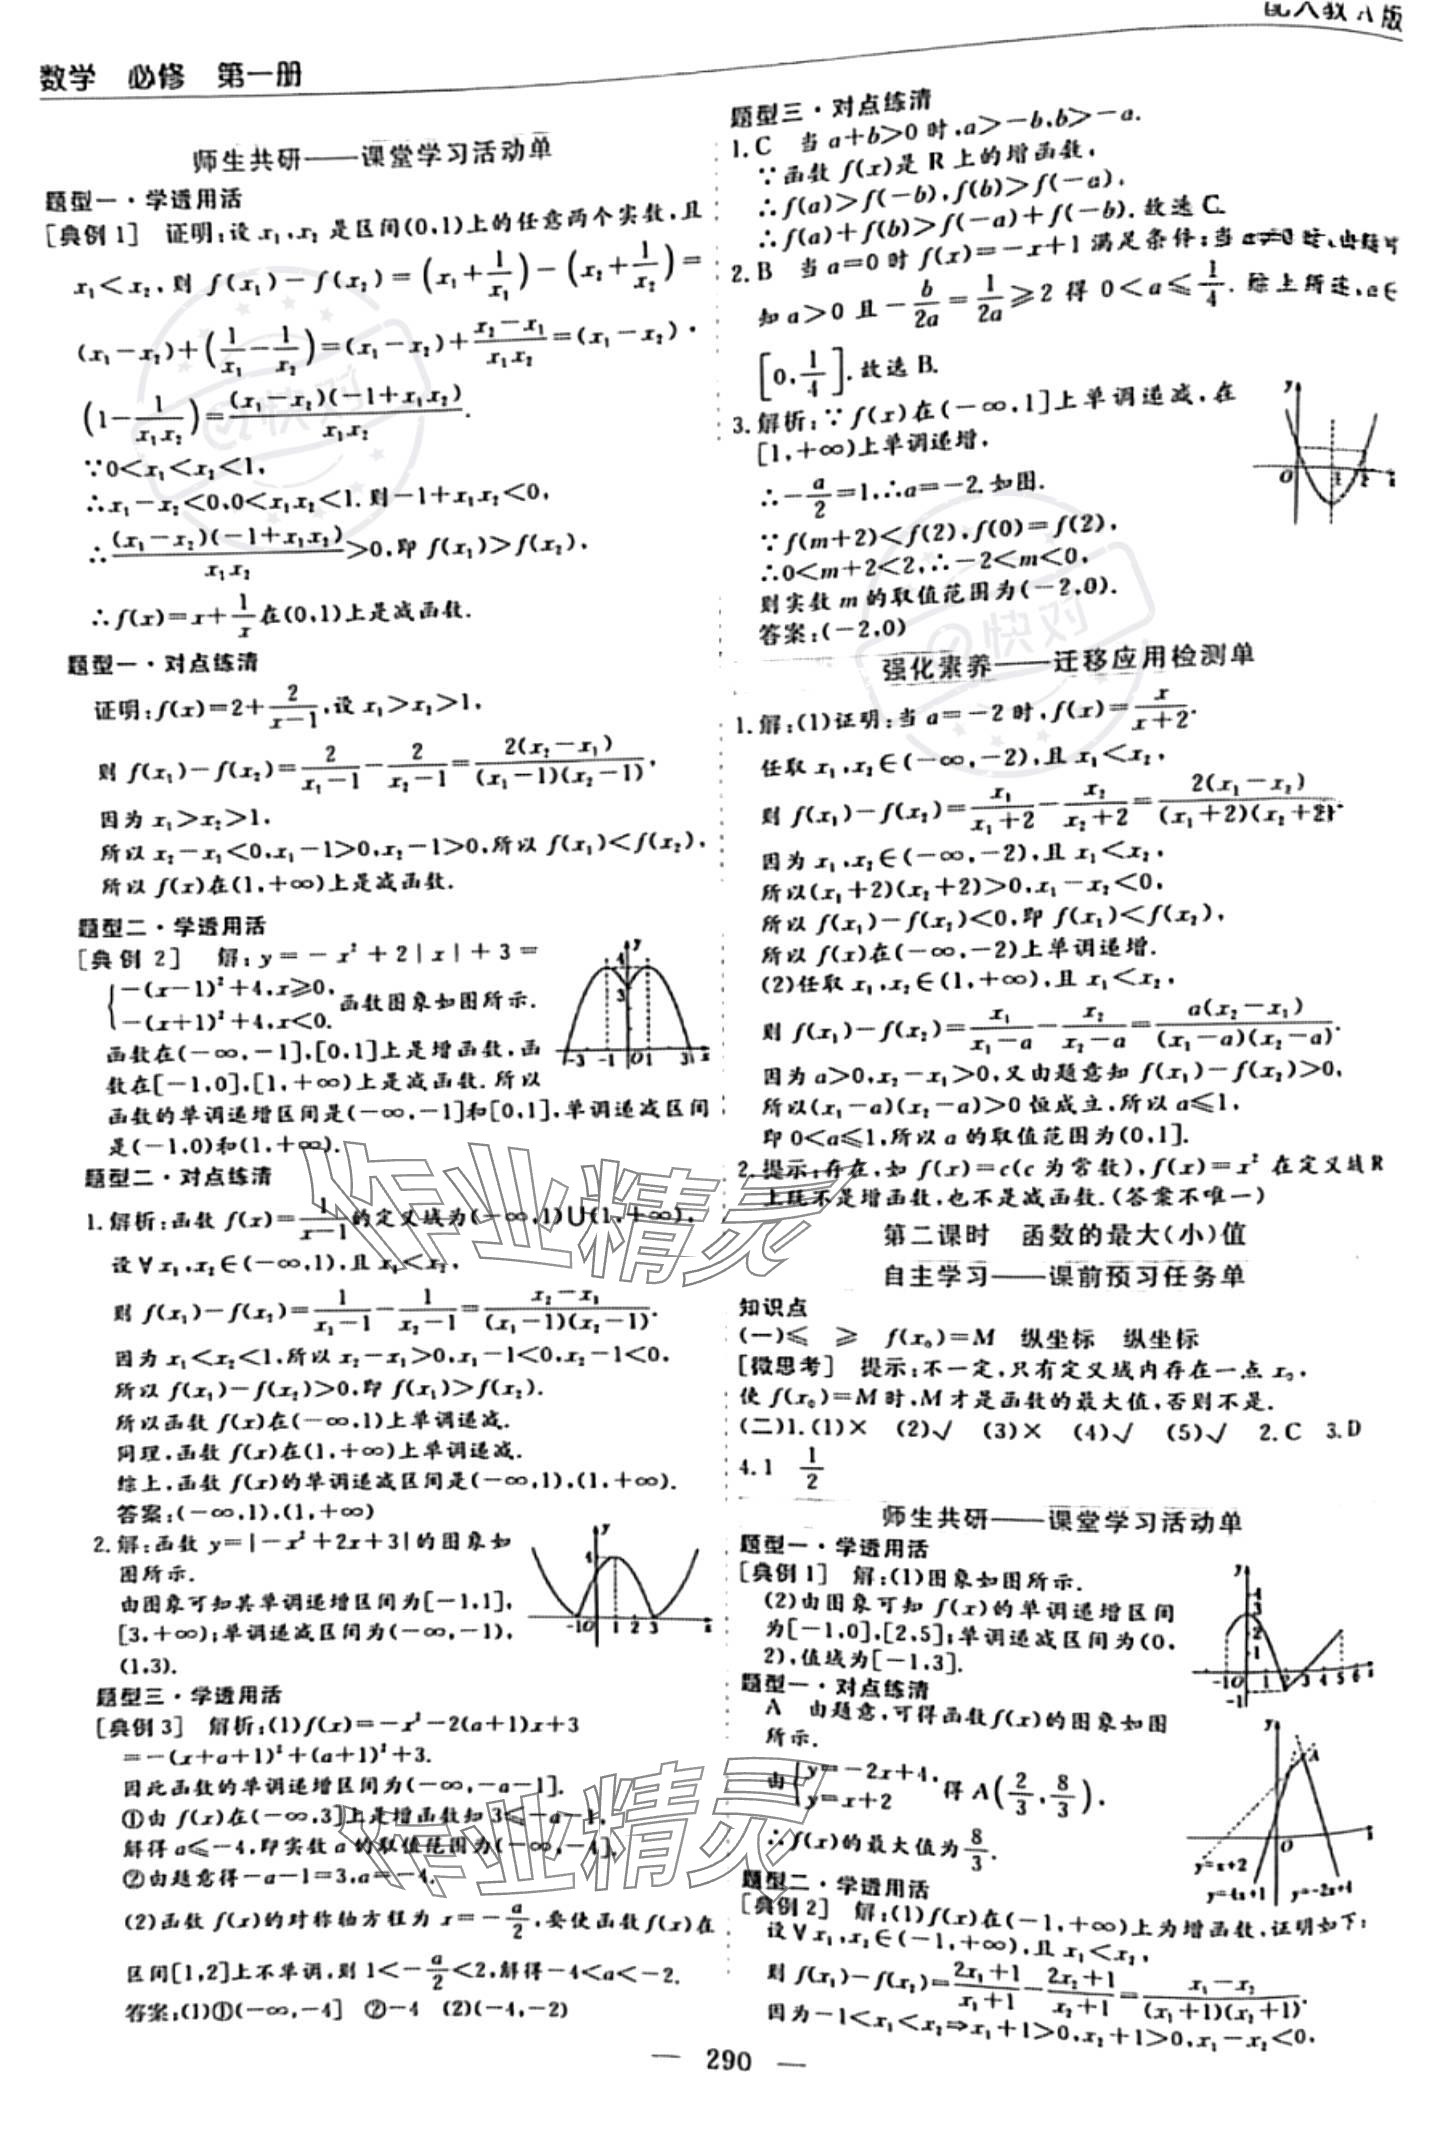 配人教A版
数学 必修 第一册
师生共研——课堂学习活动单
题型一·学透用活
[典例1] 证明:设 x₁,x₂ 是区间(0,1)上的任意两个实数,且
x₁<x₂,则 f(x₁)-f(x₂)=(x₁+1/x₁)-(x₂+1/x₂)=
(x₁-x₂)+(1/x₁-1/x₂)=(x₁-x₂)+(x₂-x₁)/(x₁x₂)=(x₁-x₂)·
(1-1/(x₁x₂))=(x₁-x₂)(-1+x₁x₂)/(x₁x₂).
∵0<x₁<x₂<1,
∴x₁-x₂<0,0<x₁x₂<1.则-1+x₁x₂<0,
∴(x₁-x₂)(-1+x₁x₂)/(x₁x₂)>0,即 f(x₁)>f(x₂),
∴f(x)=x+1/x在(0,1)上是减函数.
题型一·对点练清
证明:f(x)=2+2/(x-1),设 x₁>x₂>1,
则 f(x₁)-f(x₂)=2/(x₁-1)-2/(x₂-1)=2(x₂-x₁)/((x₁-1)(x₂-1)),
因为 x₁>x₂>1,
所以 x₂-x₁<0,x₁-1>0,x₂-1>0,所以 f(x₁)<f(x₂),
所以 f(x)在(1,+∞)上是减函数.
题型二·学透用活
[典例2] 解:y=-x²+2|x|+3=
{-(x-1)²+4,x≥0,
-(x+1)²+4,x<0. 函数图象如图所示.
函数在(-∞,-1],[0,1]上是增函数,函
数在[-1,0],[1,+∞)上是减函数.所以
函数的单调递增区间是(-∞,-1]和[0,1],单调递减区间
是(-1,0)和(1,+∞).
题型二·对点练清
1.解析:函数 f(x)=1/(x-1)的定义域为(-∞,1)∪(1,+∞),
设∀x₁,x₂∈(-∞,1),且 x₁<x₂,
则 f(x₁)-f(x₂)=1/(x₁-1)-1/(x₂-1)=(x₂-x₁)/((x₁-1)(x₂-1)).
因为 x₁<x₂<1,所以 x₂-x₁>0,x₁-1<0,x₂-1<0,
所以 f(x₁)-f(x₂)>0,即 f(x₁)>f(x₂).
所以函数 f(x)在(-∞,1)上单调递减.
同理,函数 f(x)在(1,+∞)上单调递减.
综上,函数 f(x)的单调递减区间是(-∞,1),(1,+∞).
答案:(-∞,1),(1,+∞)
2.解:函数 y=|-x²+2x+3|的图象如
图所示.
由图象可知其单调递增区间为[-1,1],
[3,+∞);单调递减区间为(-∞,-1),
(1,3).
题型三·学透用活
[典例3] 解析:(1)f(x)=-x²-2(a+1)x+3
=-(x+a+1)²+(a+1)²+3.
因此函数的单调递增区间为(-∞,-a-1].
①由 f(x)在(-∞,3]上是增函数知3≤-a-1,
解得 a≤-4,即实数 a 的取值范围为(-∞,-4].
②由题意得-a-1=3,a=-4.
(2)函数 f(x)的对称轴方程为 x=-a/2,要使函数f(x)在
区间[1,2]上不单调,则 1<-a/2<2,解得-4<a<-2.
答案:(1)①(-∞,-4] ②-4 (2)(-4,-2)
题型三·对点练清
1.C 当 a+b>0 时,a>-b,b>-a.
∵函数 f(x)是 R 上的增函数,
∴f(a)>f(-b),f(b)>f(-a),
∴f(a)+f(b)>f(-a)+f(-b).故选 C.
2.B 当 a=0 时 f(x)=-x+1 满足条件;当 a≠0 时,由题可
知 a>0 且-b/2a=1/2a≥2 得 0<a≤1/4.综上所述,a∈
[0,1/4].故选 B.
3.解析:∵f(x)在(-∞,1]上单调递减,在
[1,+∞)上单调递增,
∴-a/2=1,∴a=-2.如图.
∵f(m+2)<f(2),f(0)=f(2),
∴0<m+2<2,∴-2<m<0,
则实数 m 的取值范围为(-2,0).
答案:(-2,0)
强化素养——迁移应用检测单
1.解:(1)证明:当 a=-2 时,f(x)=x/(x+2).
任取 x₁,x₂∈(-∞,-2),且 x₁<x₂,
则 f(x₁)-f(x₂)=x₁/(x₁+2)-x₂/(x₂+2)=2(x₁-x₂)/((x₁+2)(x₂+2)).
因为 x₁,x₂∈(-∞,-2),且 x₁<x₂,
所以(x₁+2)(x₂+2)>0,x₁-x₂<0,
所以 f(x₁)-f(x₂)<0,即 f(x₁)<f(x₂),
所以 f(x)在(-∞,-2)上单调递增.
(2)任取 x₁,x₂∈(1,+∞),且 x₁<x₂,
则 f(x₁)-f(x₂)=x₁/(x₁-a)-x₂/(x₂-a)=a(x₂-x₁)/((x₁-a)(x₂-a)).
因为 a>0,x₂-x₁>0,又由题意知 f(x₁)-f(x₂)>0,
所以(x₁-a)(x₂-a)>0 恒成立,所以 a≤1,
即 0<a≤1,所以 a 的取值范围为(0,1].
2.提示:存在,如 f(x)=c(c 为常数),f(x)=x² 在定义域R
上既不是增函数,也不是减函数.(答案不唯一)
第二课时 函数的最大(小)值
自主学习——课前预习任务单
知识点
(一)≤ ≥ f(x₀)=M 纵坐标 纵坐标
[微思考] 提示:不一定,只有定义域内存在一点 x₀,
使 f(x₀)=M 时,M 才是函数的最大值,否则不是.
(二)1.(1)× (2)√ (3)× (4)√ (5)√ 2.C 3.D
4.1 1/2
师生共研——课堂学习活动单
题型一·学透用活
[典例1] 解:(1)图象如图所示.
(2)由图象可知 f(x)的单调递增区间
为[-1,0],[2,5];单调递减区间为(0,
2),值域为[-1,3].
题型一·对点练清
A 由题意,可得函数f(x)的图象如图
所示.
由{y=-2x+4,
y=x+2 得 A(2/3,8/3),
∴f(x)的最大值为8/3.
y=x+2
y=4x+1 y=-2x+4
题型二·学透用活
[典例2] 解:(1)f(x)在(-1,+∞)上为增函数,证明如下:
设∀x₁,x₂∈(-1,+∞),且 x₁<x₂,
则 f(x₁)-f(x₂)=(2x₁+1)/(x₁+1)-(2x₂+1)/(x₂+1)=(x₁-x₂)/((x₁+1)(x₂+1)).
因为-1<x₁<x₂⇒x₁+1>0,x₂+1>0,x₁-x₂<0,
— 290 —
快对
快对
作业精灵
作业精灵